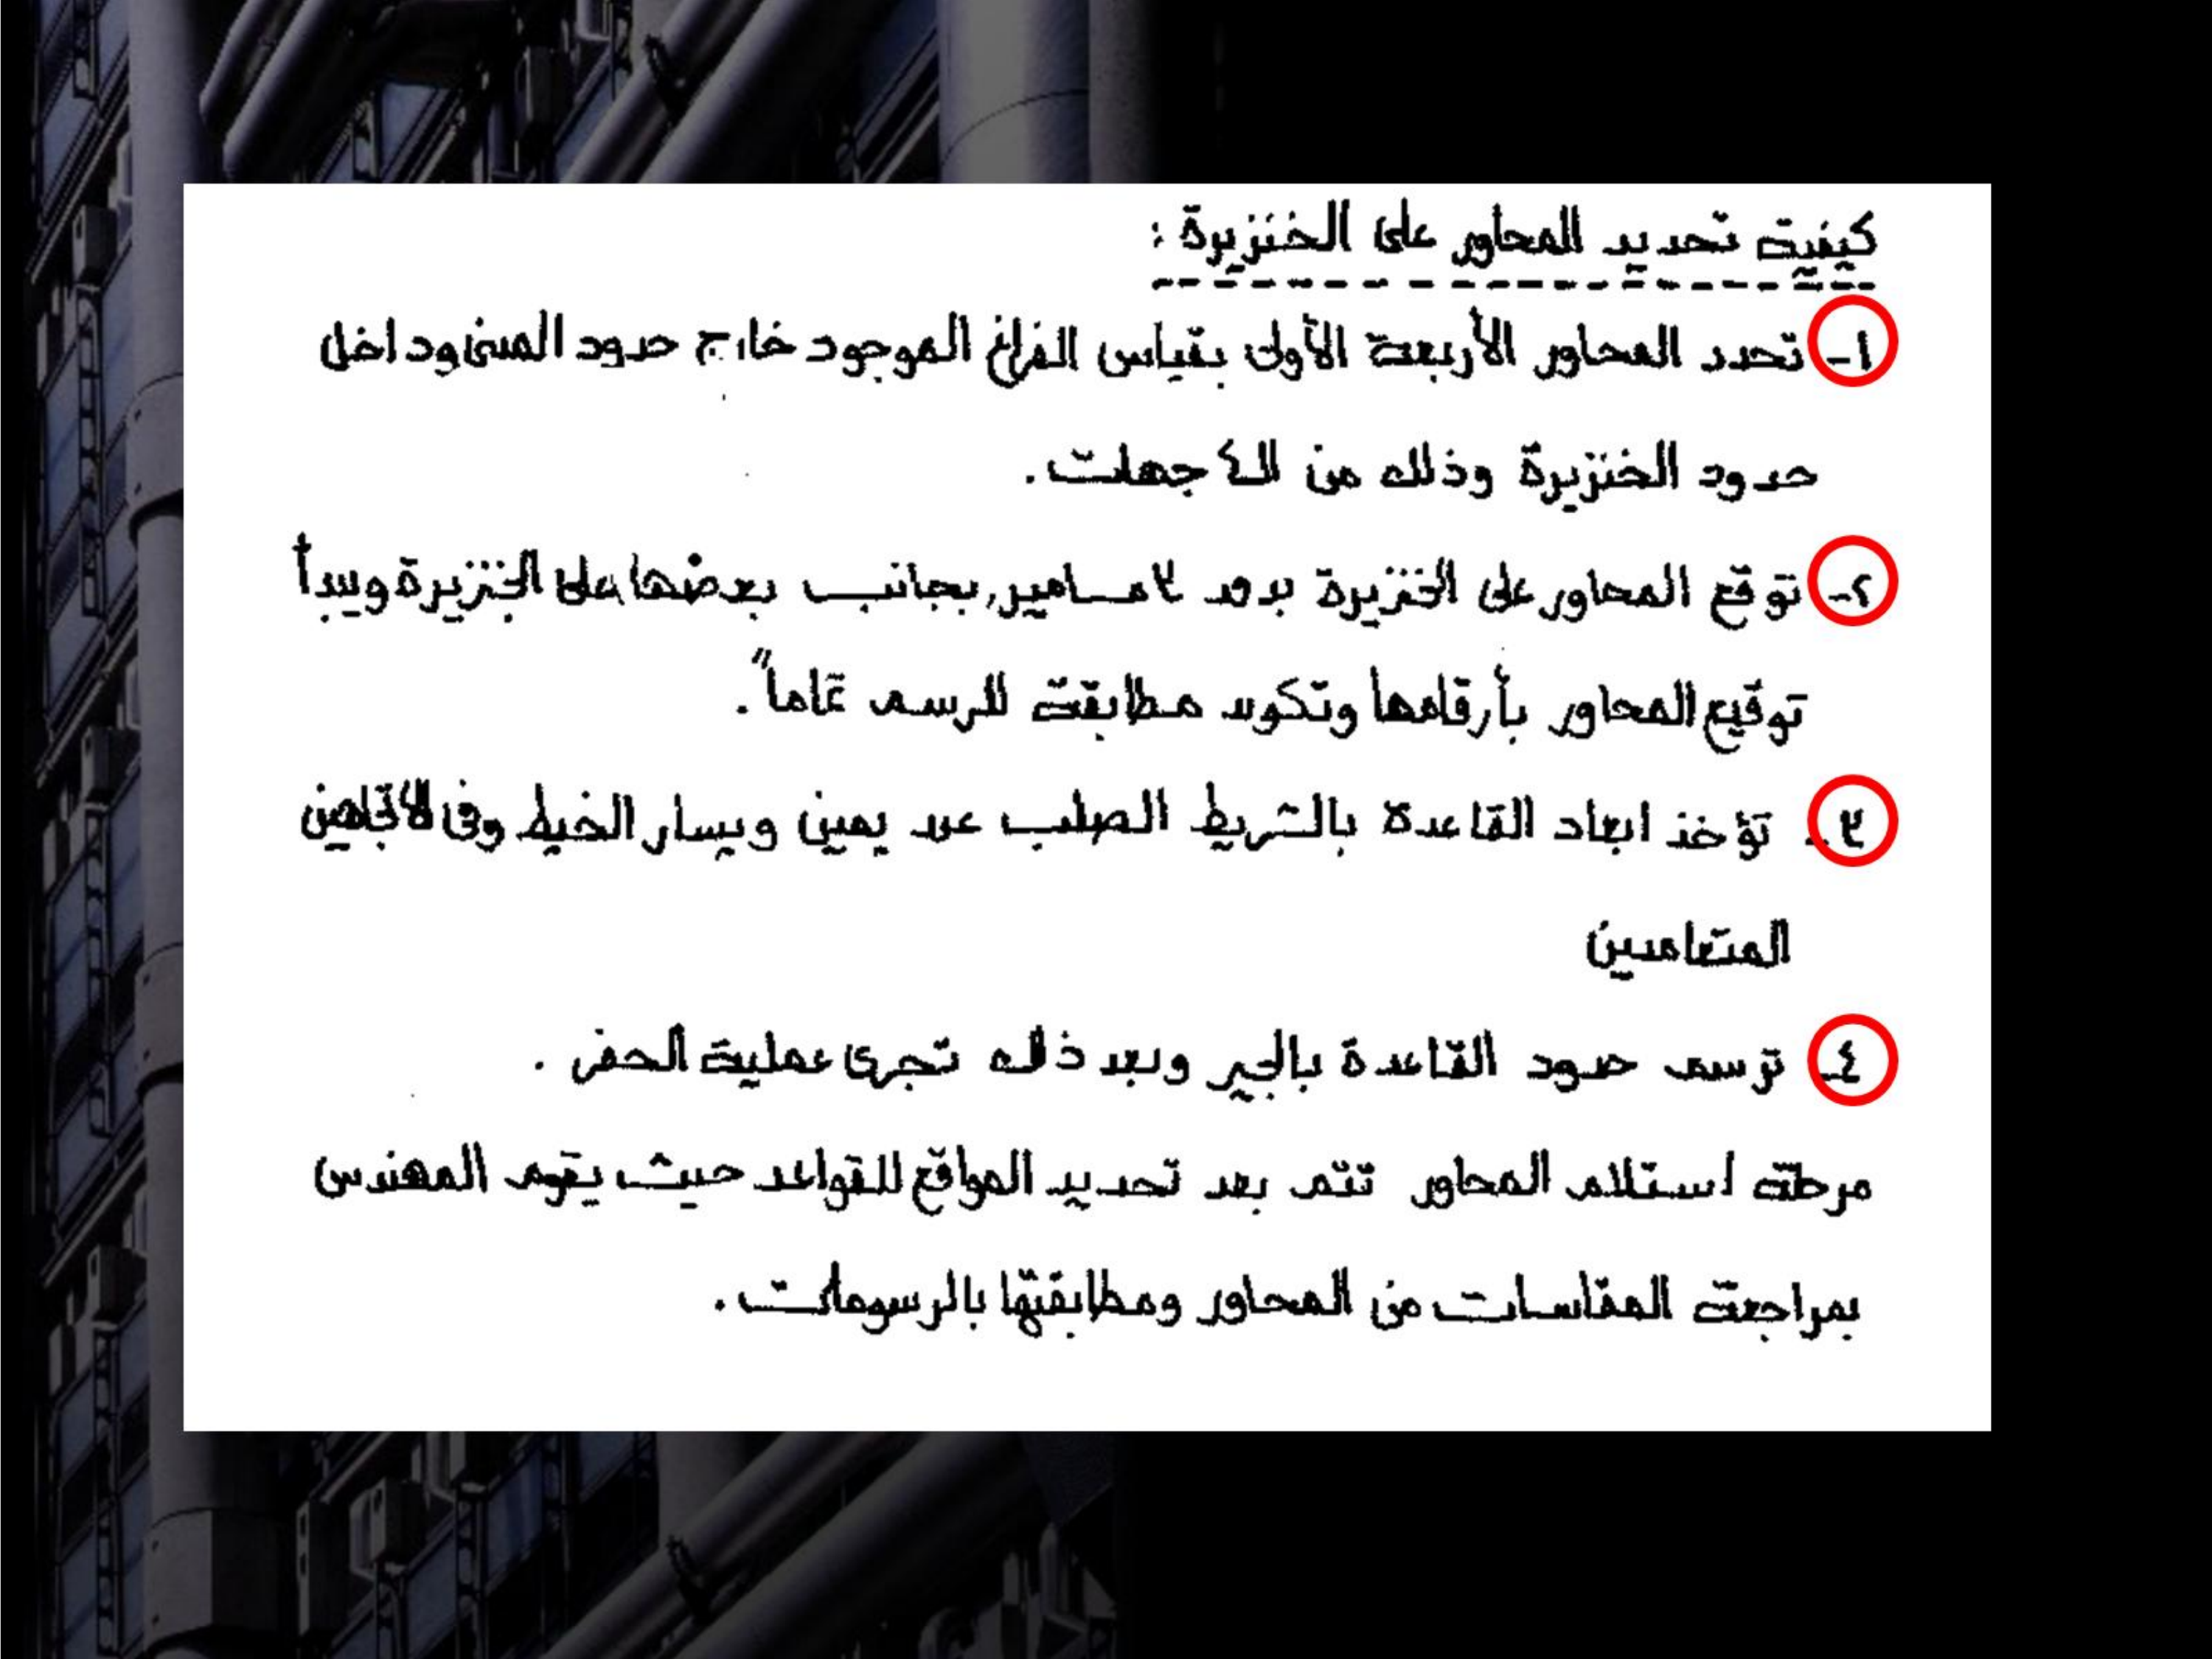 كيفية تحديد المحاور على الخنزيرة :
١- تحدد المحاور الأربعة الأولى بقياس الفراغ الموجود خارج حدود المبنى وداخل
حدود الخنزيرة وذلك من الـ٤ جهات .
٢- توقع المحاور على الخنزيرة بدق ٣ مسامير بجانب بعضها على الخنزيرة ويبدأ
توقيع المحاور بأرقامها وتكون مطابقة للرسم تماماً .
٣- تؤخذ ابعاد القاعدة بالشريط الصلب عن يمين ويسار الخيط وفى الاتجاهين
المتعامدين
٤- ترسم حدود القاعدة بالجير وبعد ذلك تجرى عملية الحفر .
مرحلة استلام المحاور تتم بعد تحديد المواقع للقواعد حيث يقوم المهندس
بمراجعة المقاسات من المحاور ومطابقتها بالرسومات .